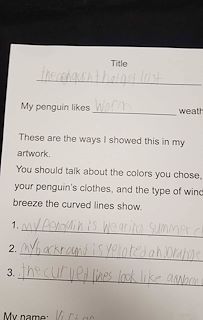 Title
the penguin that got lost
My penguin likes warm weath
These are the ways I showed this in my
artwork.
You should talk about the colors you chose,
your penguin's clothes, and the type of wind
breeze the curved lines show.
1. My Penguin is wearing summer c
2. my background is
3. the curved lines look like
My name: